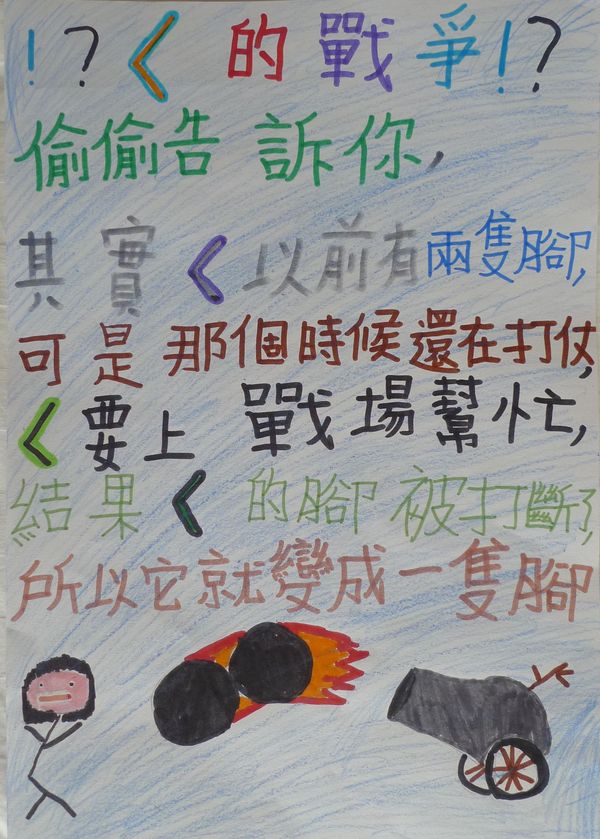 ！？ㄑ的戰爭！？
偷偷告訴你，
其實ㄑ以前有兩隻腳，
可是那個時候還在打仗，
ㄑ要上戰場幫忙，
結果ㄑ的腳被打斷了，
所以它就變成一隻腳